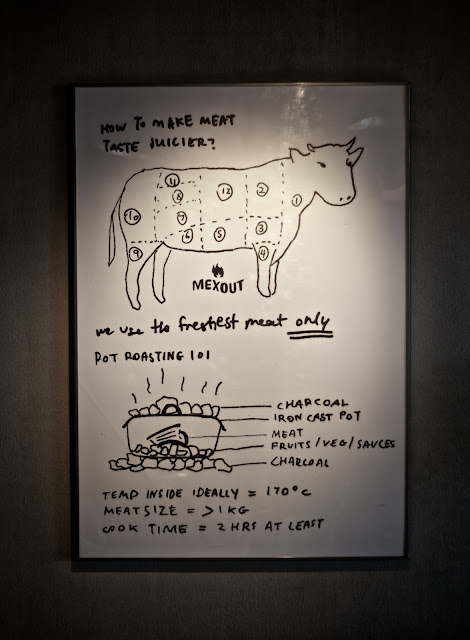 HOW TO MAKE MEAT
TASTE JUICIER?
11
10
8
12
2
1
7
6
5
3
9
4
MEXOUT
we use the freshest meat only
POT ROASTING 101
CHARCOAL
IRON CAST POT
MEAT
FRUITS/VEG/SAUCES
CHARCOAL
TEMP INSIDE IDEALLY = 170°C
MEAT SIZE = >1KG
COOK TIME = 2 HRS AT LEAST